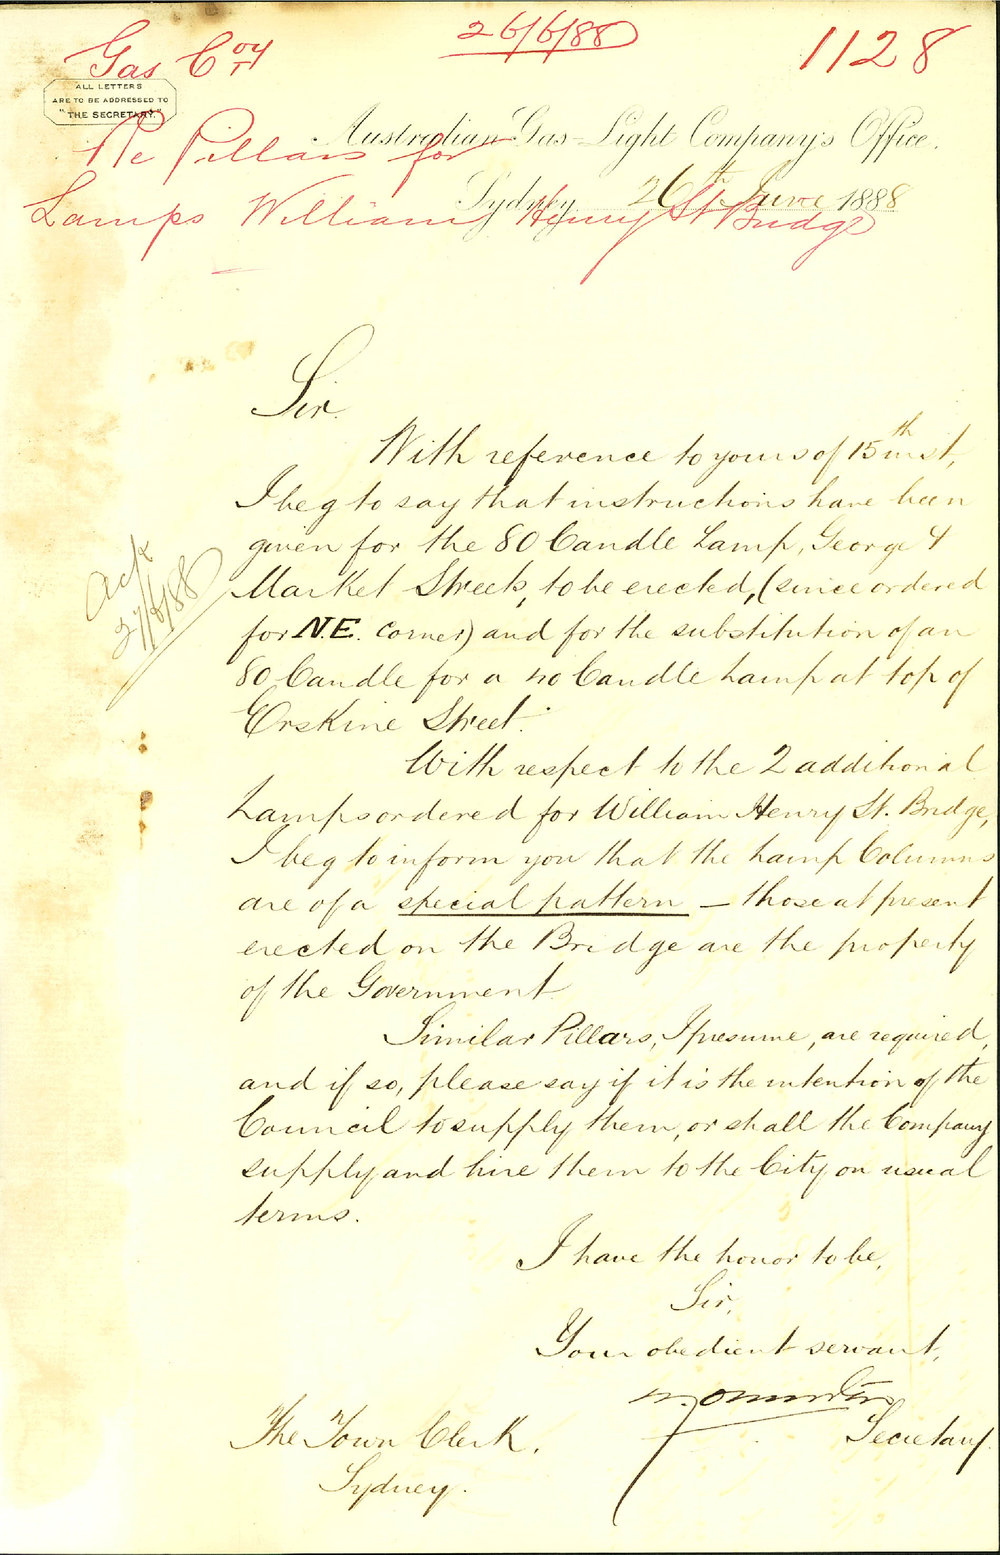 Gas Coy
26/6/88
1128
ALL LETTERS
ARE TO BE ADDRESSED TO
"THE SECRETARY."
Australian Gas-Light Company's Office.
Re Pillars for
Sydney 26th June 1888
Lamps William Henry St Bridge
Sir.
With reference to yours of 15th inst,
I beg to say that instructions have been
given for the 80 Candle Lamp, George &
Market Streets, to be erected, (since ordered
for N.E. corner) and for the substitution of an
80 Candle for a 40 Candle Lamp at top of
Erskine Street.
Ack
27/6/88
With respect to the 2 additional
Lamps ordered for William Henry St. Bridge,
I beg to inform you that the Lamp Columns
are of a special pattern — those at present
erected on the Bridge are the property
of the Government
Similar Pillars, I presume, are required,
and if so, please say if it is the intention of the
Council to supply them, or shall the Company
supply and hire them to the City on usual
terms.
I have the honor to be,
Sir,
Your obedient servant,
Secretary.
The Town Clerk.
Sydney.